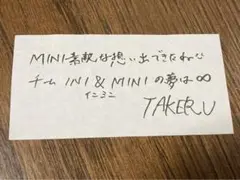 MINI素敵な想い出できたねな
チーム INI & MINI の夢は∞
インミニ
TAKERU